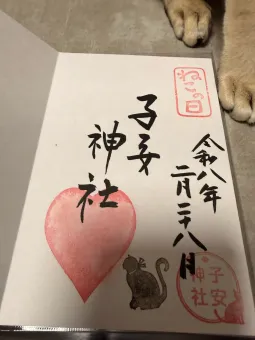 ねこの日
令和八年
二月二十八日
子安神社
子安
神社